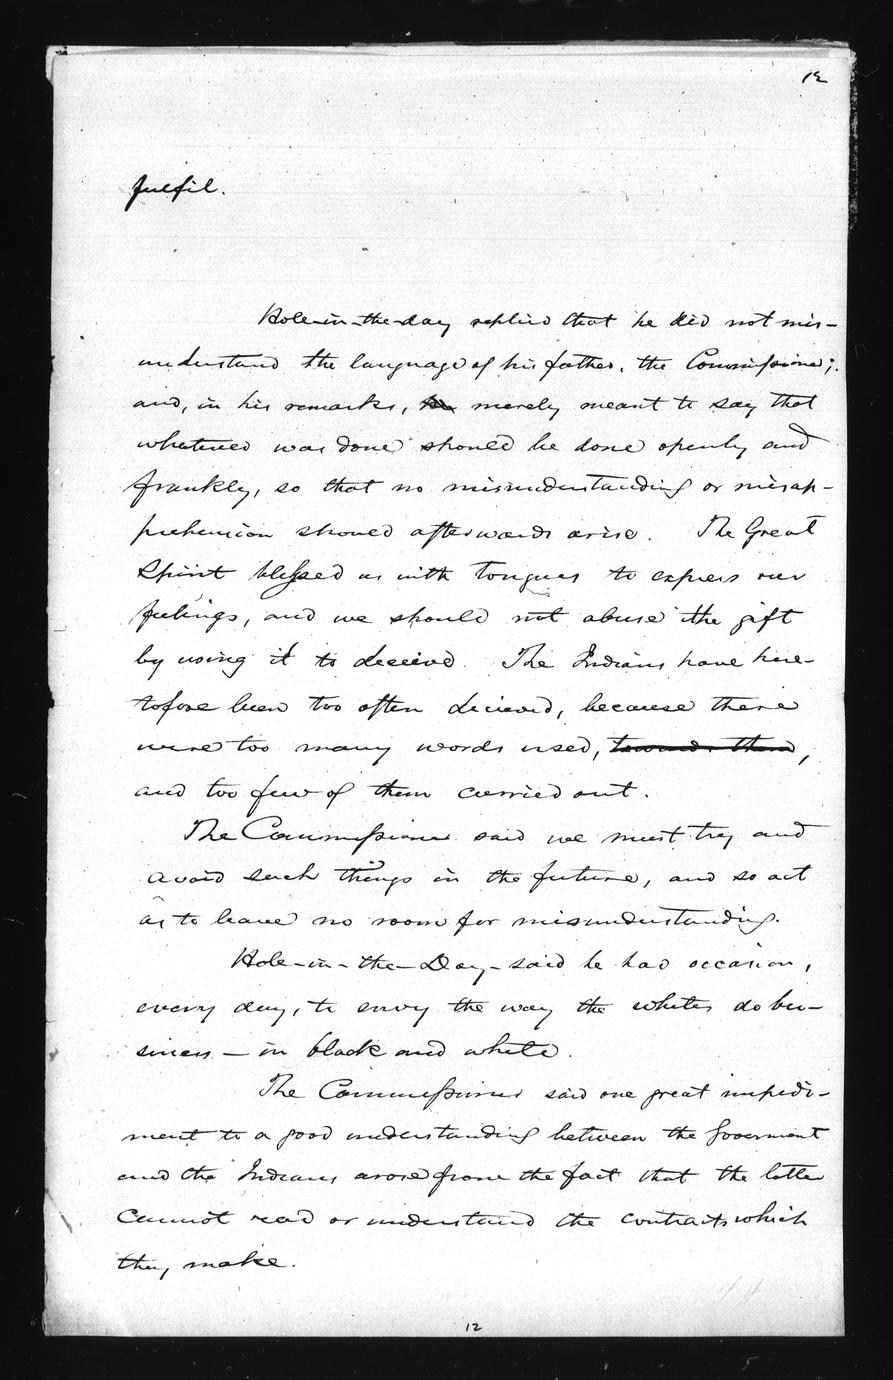 12
fulfil.
Hole-in-the-day replied that he did not mis-
understand the language of his father, the Commissioner;
and, in his remarks, merely meant to say that
whatever was done should be done openly and
frankly, so that no misunderstanding or misap-
prehension should afterwards arise. The Great
Spirit blessed us with tongues to express our
feelings, and we should not abuse the gift
by using it to deceive. The Indians have here-
tofore been too often decieved, because there
were too many words used, towards them,
and too few of them carried out.
The Commissioner said we must try and
avoid such things in the future, and so act
as to leave no room for misunderstanding.
Hole-in-the-Day-said he had occasion,
every day, to envy the way the whites do bu-
siness - in black and white.
The Commissioner said one great impedi-
ment to a good understanding between the Goverment
and the Indians arose from the fact that the latter
cannot read or understand the contracts which
they make.
12